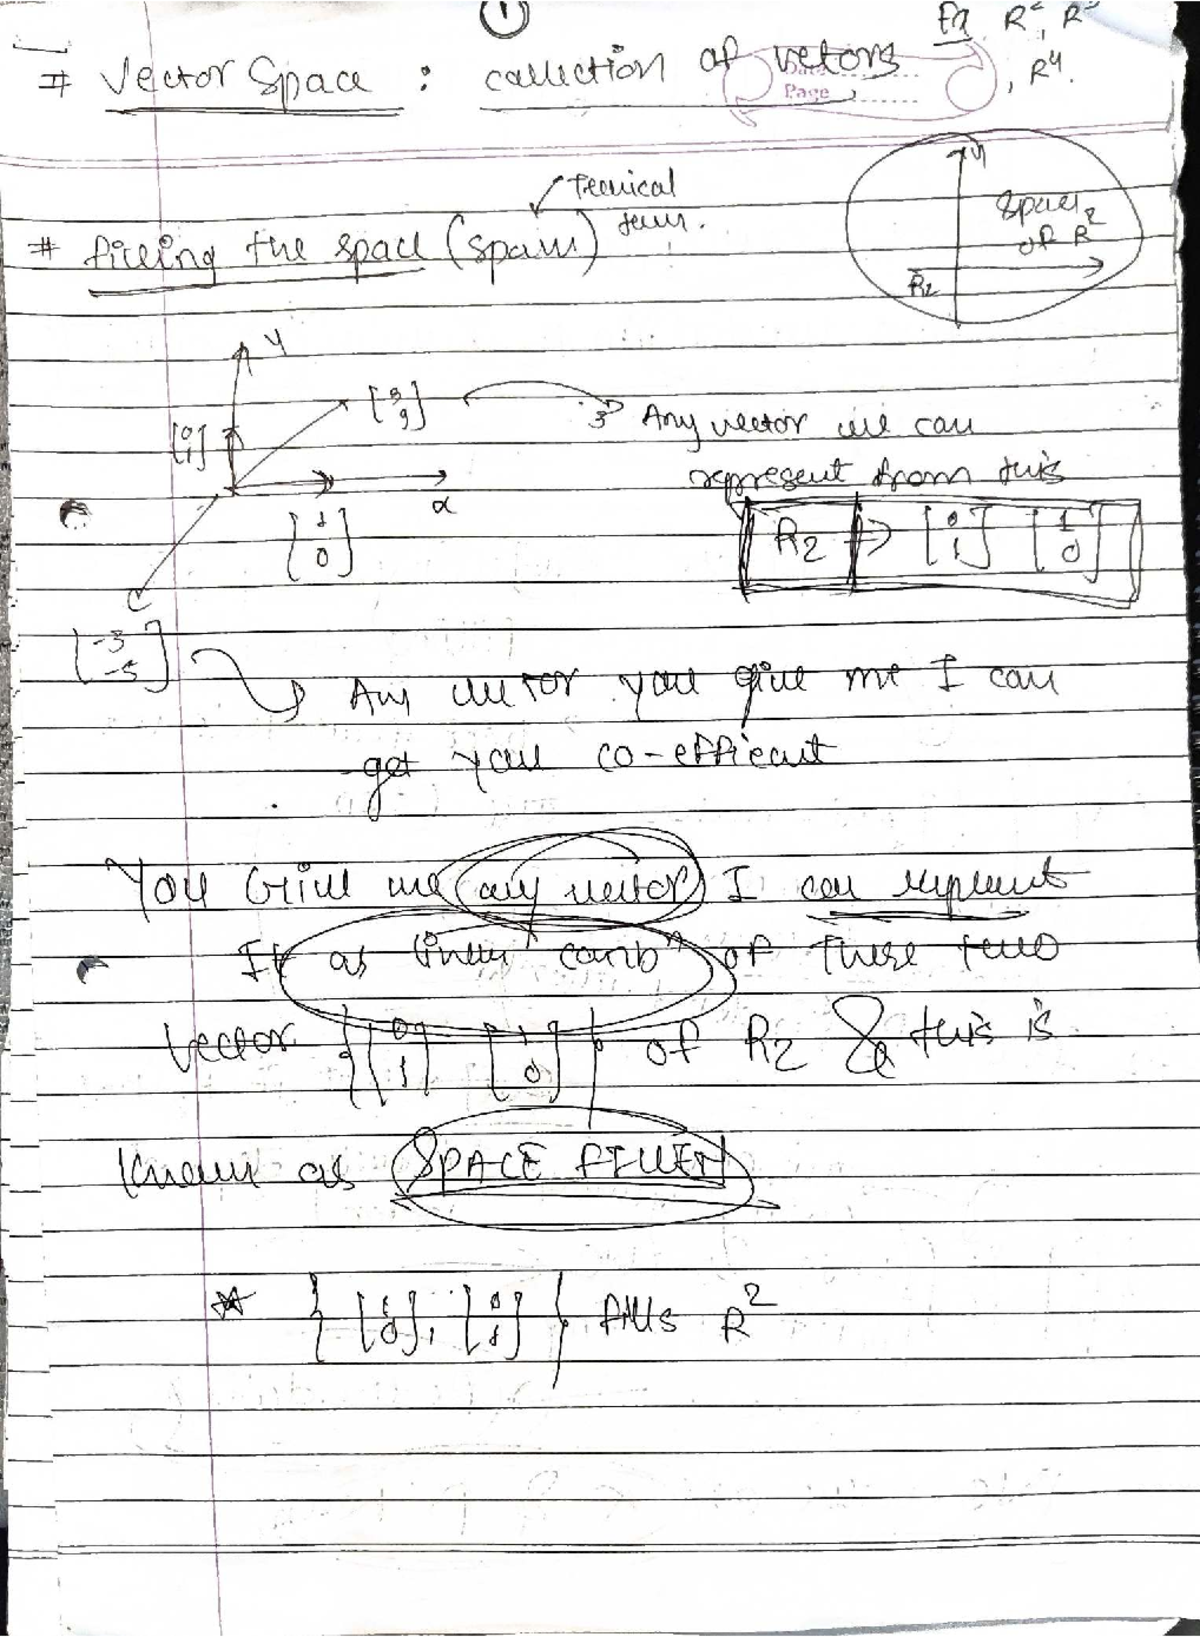 ①
Ex R², R³
# Vector Space : collection of vetors , R⁴.
Date ..........
Page ..........
Tecnical
term.
# filling the space (span)
y
Space
of R²
R2
y
[3 9]
[0 1]
x
[1 0]
3 Any vector we can
represent from this
R2 => [0 1] [1 0]
[-3 -5]
Any vector you give me I can
get you co-efficeut
You Give me any vector I can represent
It as linear combⁿ of these two
Vector {[0 1] [1 0]} of R2 & this is
Known as SPACE FILLEN
* {[1 0], [0 1]} fills R²